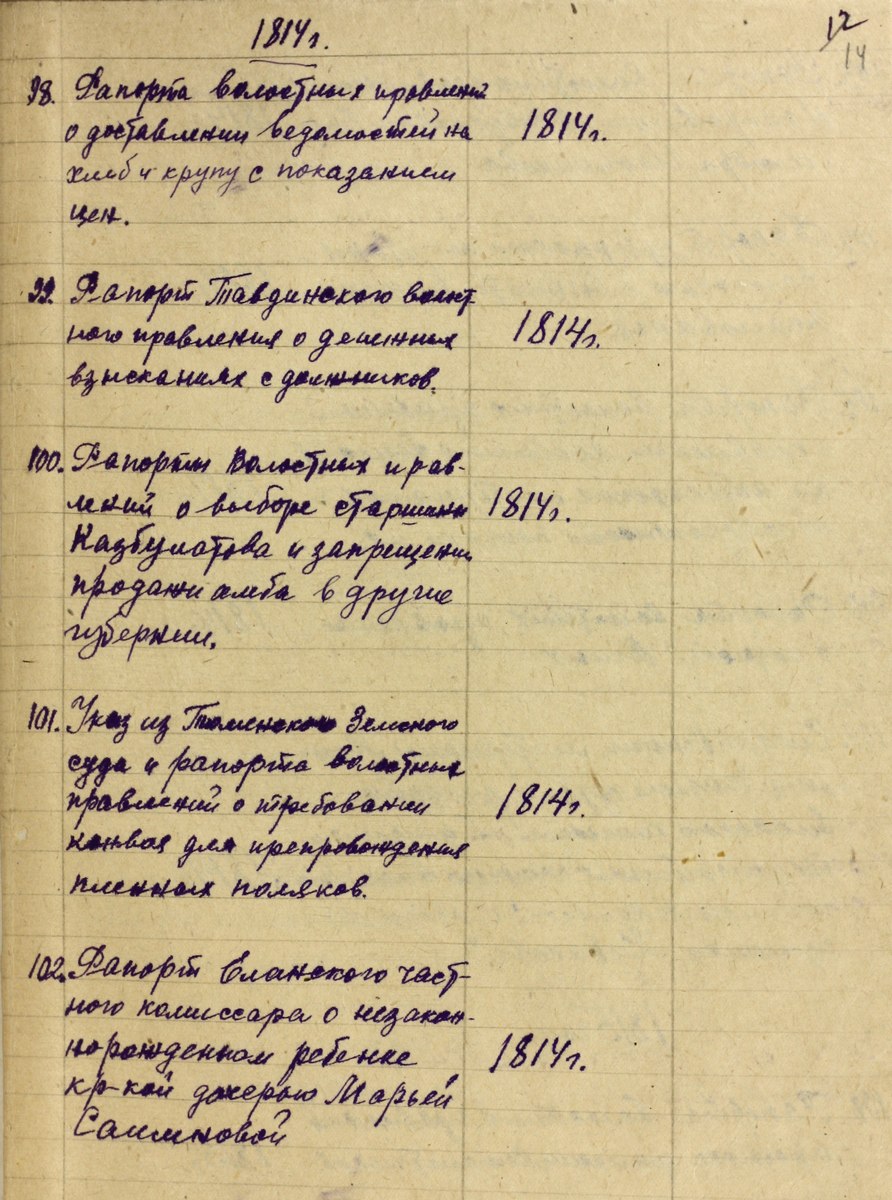 12
14
1814г.
98. Рапорта волостных правлений
о доставлении ведомостей на
хлеб и крупу с показанием
цен.
1814г.
99. Рапорт Тавдинского волост
ного правления о денежных
взысканиях с должников.
1814г.
100. Рапорты волостных прав-
лений о выборе старшины
Казбулатова и запрещении
продажи хлеба в другие
губернии.
1814г.
101. Указ из Тюменского Земского
суда и рапорта волостных
правлений о требовании
конвоя для препровождения
пленных поляков.
1814г.
102. Рапорт Еланского част-
ного комиссара о незакон-
норожденном ребенке
кр-кой дочерью Марьей
1814г.